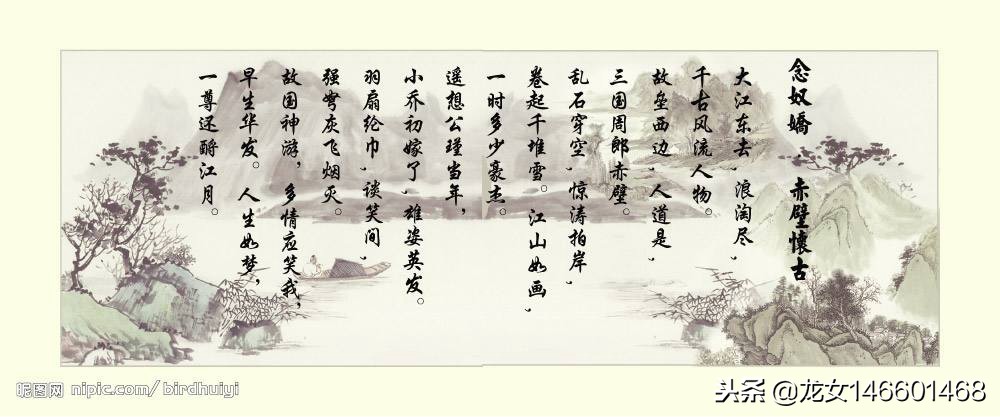 念奴嬌 赤壁懷古
大江东去，浪淘尽，
千古风流人物。
故垒西边，人道是，
三国周郎赤壁。
乱石穿空，惊涛拍岸，
卷起千堆雪。江山如画，
一时多少豪杰。
遥想公瑾当年，
小乔初嫁了，雄姿英发。
羽扇纶巾，谈笑间，
强弩灰飞烟灭。
故国神游，多情应笑我，
早生华发。人生如梦，
一尊还酹江月。
昵图网 nipic.com/birdhuiyi
头条 @龙女146601468